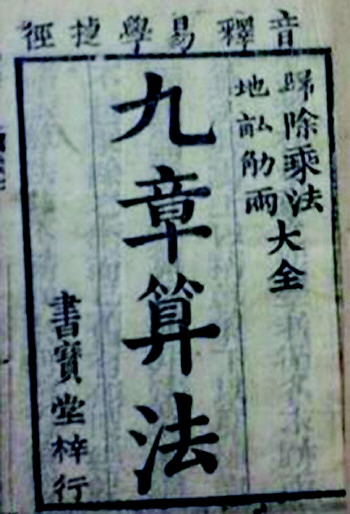 音釋易學捷徑
歸除乘法
地畝觔兩
大全
九章算法
書寶堂梓行